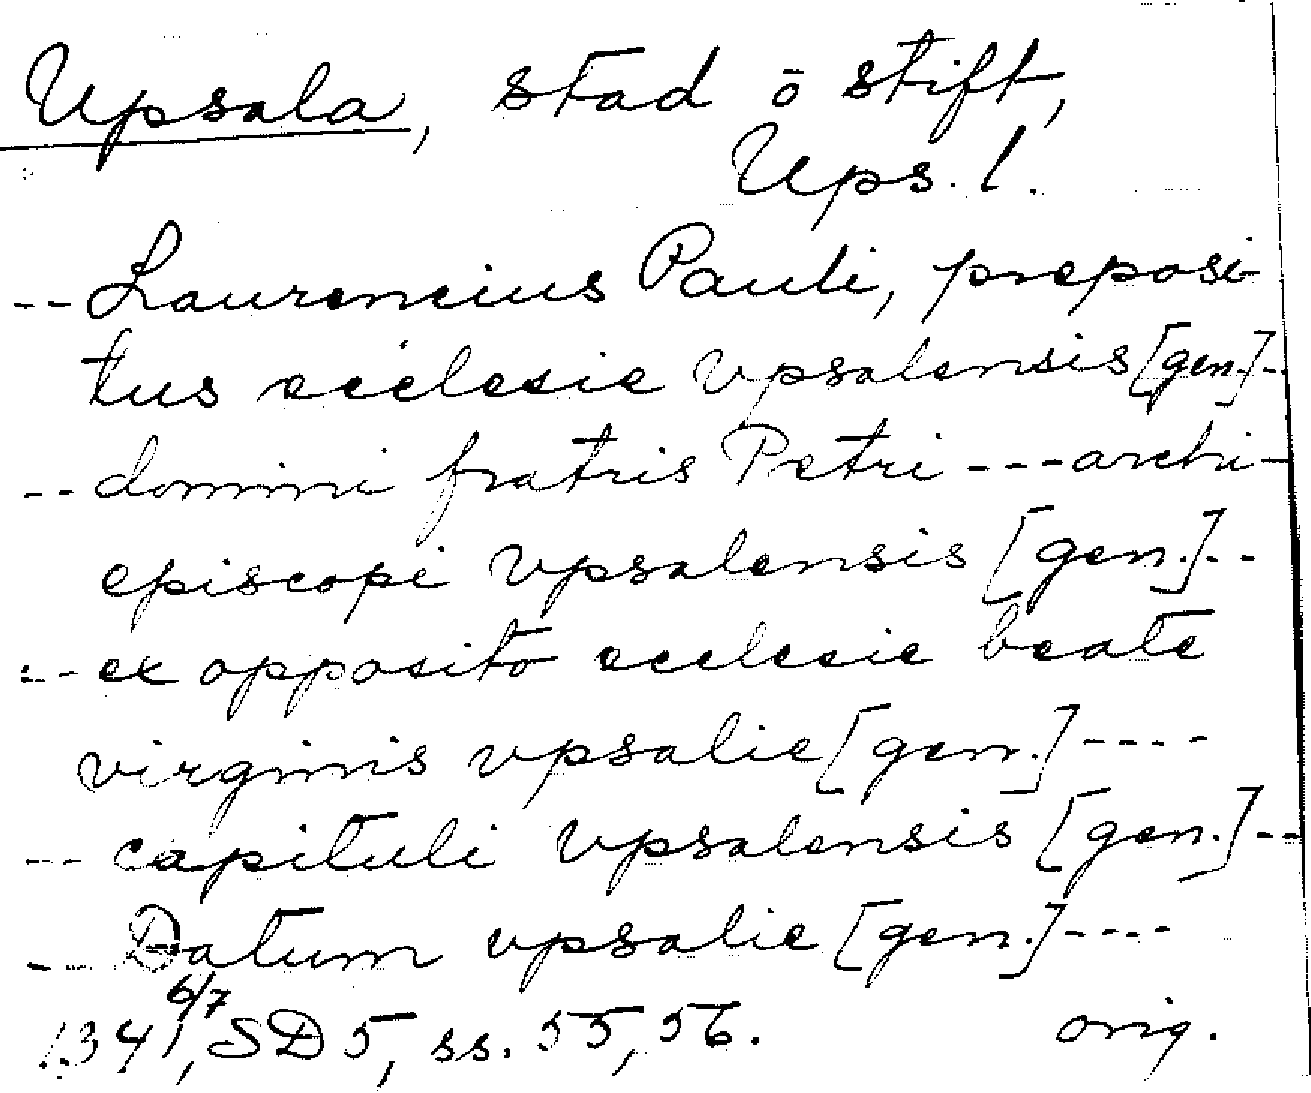 Upsala, stad o stift,
Ups. l.
-- Laurencius Pauli, preposi-
tus ecclesie vpsalensis [gen.]--
-- domini fratris Petri --- archi-
episcopi vpsalensis [gen.]--
-- ex opposito ecclesie beate
virginis vpsalie [gen.] ----
-- capituli vpsalensis [gen.]--
-- Datum vpsalie [gen.] ----
1341 6/7, SD 5, ss. 55, 56. orig.